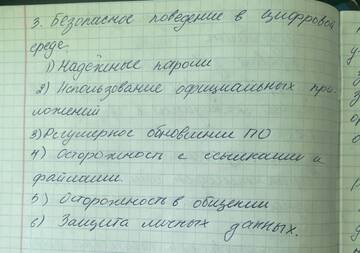 3. Безопасное поведение в цифровой
среде.
1) Надёжные пароли
2) Использование официальных при-
ложений
3) Регулярное обновление ПО
4) Осторожность с ссылками и
файлами.
5) Осторожность в общении
6) Защита личных данных.